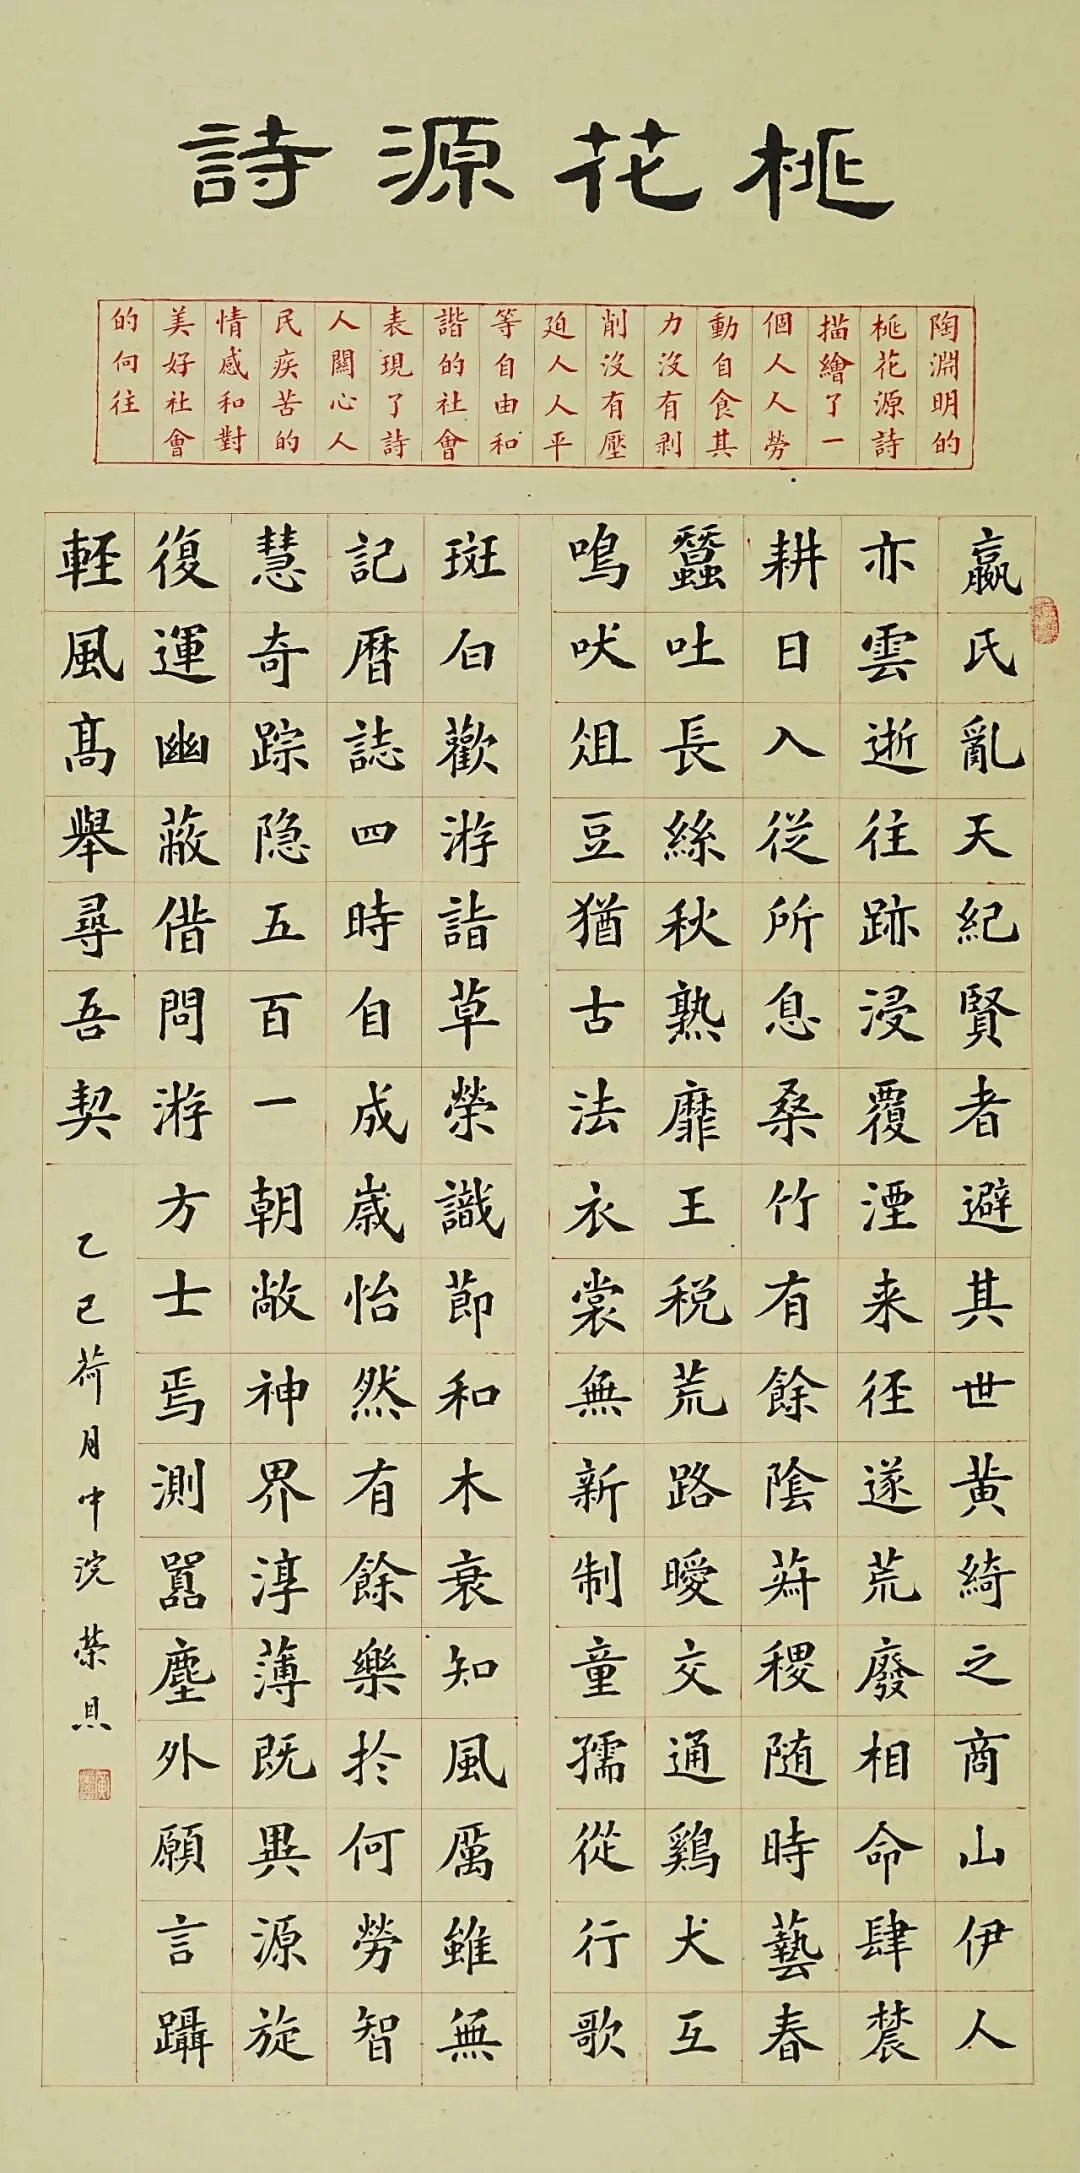 桃花源詩
陶淵明的
桃花源詩
描繪了一
個人人勞
動自食其
力沒有剥
削沒有壓
迫人人平
等自由和
諧的社會
表現了詩
人關心人
民疾苦的
情感和對
美好社會
的向往
嬴氏亂天紀賢者避其世黄綺之商山伊人
亦雲逝往跡浸覆湮来径遂荒廢相命肆農
耕日入從所息桑竹有餘陰菽稷随時藝春
蠶吐長絲秋熟靡王税荒路曖交通鷄犬互
鳴吠俎豆猶古法衣裳無新制童孺從行歌
斑白歡游詣草榮識節和木衰知風厲雖無
記曆誌四時自成歲怡然有餘樂於何勞智
慧奇踪隐五百一朝敞神界淳薄既異源旋
復運幽蔽借問游方士焉測囂塵外願言躡
軽風高舉尋吾契
乙巳荷月中浣榮恩